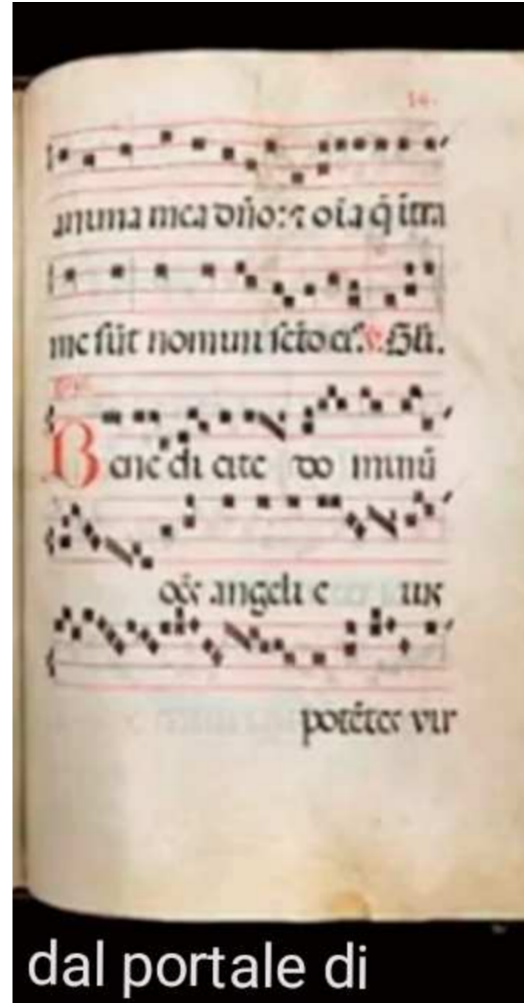 anima mea dño: ⁊ oĩa q̃ ĩtra
me sũt nomini scto eiꝰ. ℣. Bñ.
Benedicite dominũ
oẽs angeli eius
potẽtes vir
dal portale di